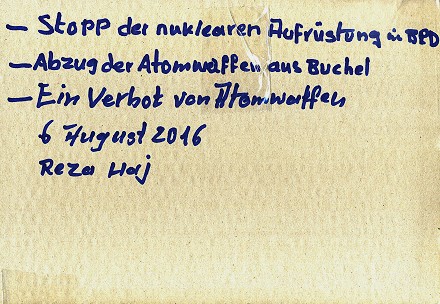 — Stopp der nuklearen Aufrüstung in BRD
— Abzug der Atomwaffen aus Buchel
— Ein Verbot von Atomwaffen
6 August 2016
Reza Haj